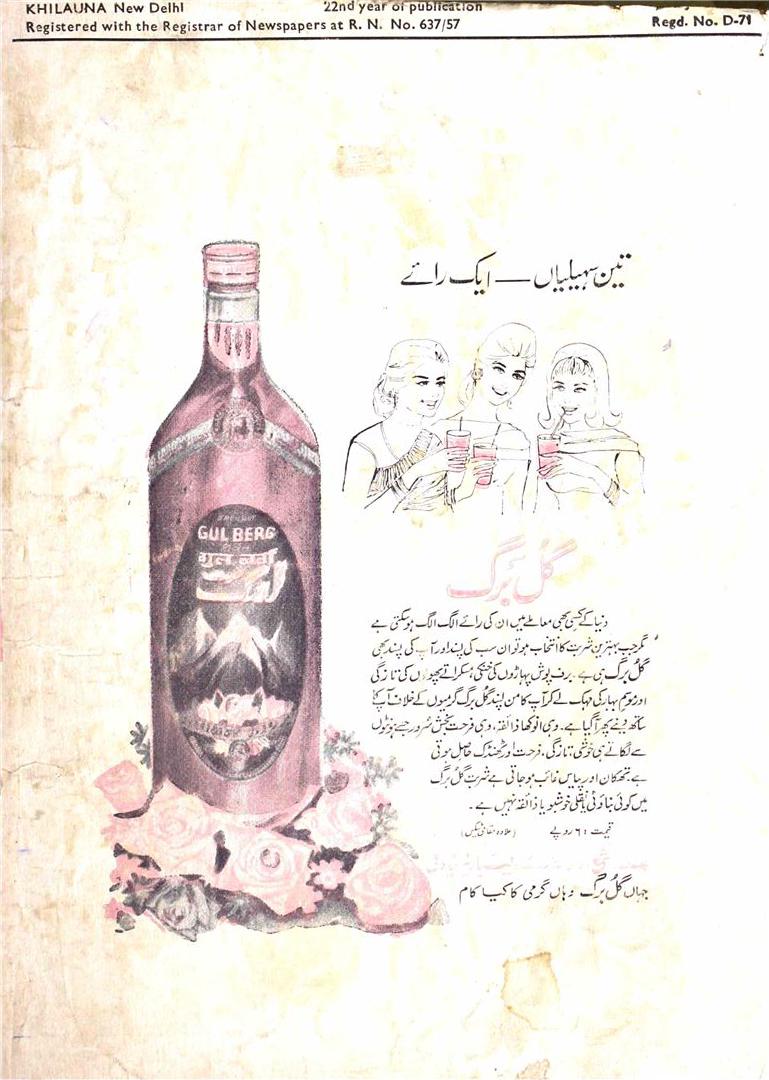 KHILAUNA New Delhi 22nd year of publication
Registered with the Registrar of Newspapers at R. N. No. 637/57 Regd. No. D-71
تین سہیلیاں — ایک رائے
GUL BERG
गुल बर्ग
گُل برگ
دنیا کے کسی بھی معاملے میں ان کی رائے الگ الگ ہو سکتی ہے
مگر جب بہترین شربت کا انتخاب ہو تو ان سب کی پسند اور آپ کی پسند بھی
گل برگ ہی ہے۔ برف پوش پہاڑوں کی خنکی، مسکراتے پھولوں کی تازگی
اور موسم بہار کی مہک لے کر آپ کا من پسند گل برگ گرمیوں کے خلاف آپ کا
ساتھ دینے پھر آ گیا ہے۔ وہی انوکھا ذائقہ، وہی فرحت بخش سُرور جسے ہونٹوں
سے لگاتے ہی خوشی، تازگی، فرحت اور ٹھنڈک حاصل ہوتی
ہے۔ تھکان اور پیاس غائب ہو جاتی ہے شربت گل برگ
میں کوئی بناوٹی یا نقلی خوشبو یا ذائقہ نہیں ہے۔
قیمت : ۶ روپے (علاوہ مقامی ٹیکس)
جہاں گُل برگ وہاں گرمی کا کیا کام